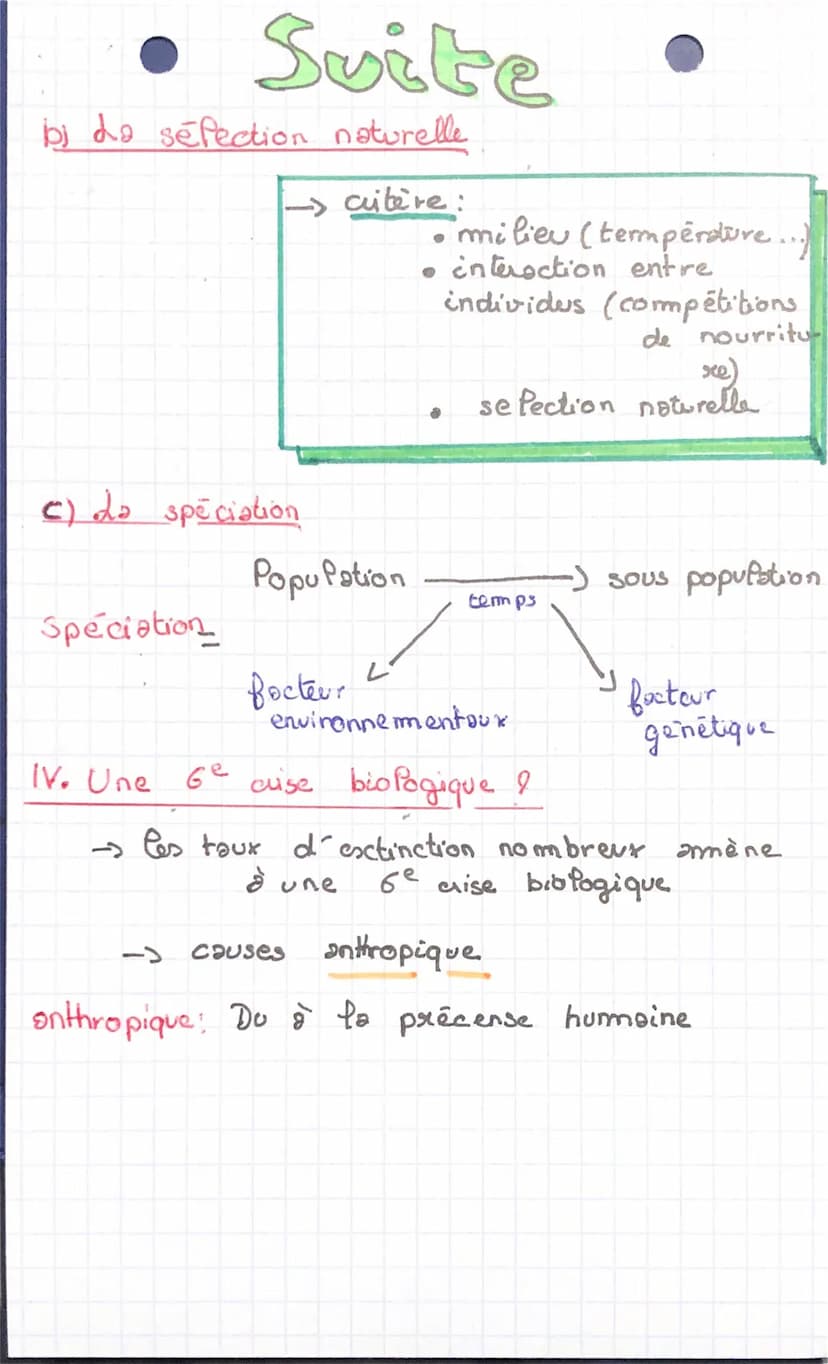 Suite
b) La sélection naturelle
→ critère :
• milieu (température...)
• interaction entre
individus (compétitions
de nourritu-
re)
• selection naturelle
c) La spéciation
Population → sous population
temps
Spéciation
facteur
environnementaux
facteur
génétique
IV. Une 6e crise biologique ?
→ les taux d'extinction nombreux amène
à une 6e crise biologique
→ causes anthropique
anthropique: Du à la précense humaine